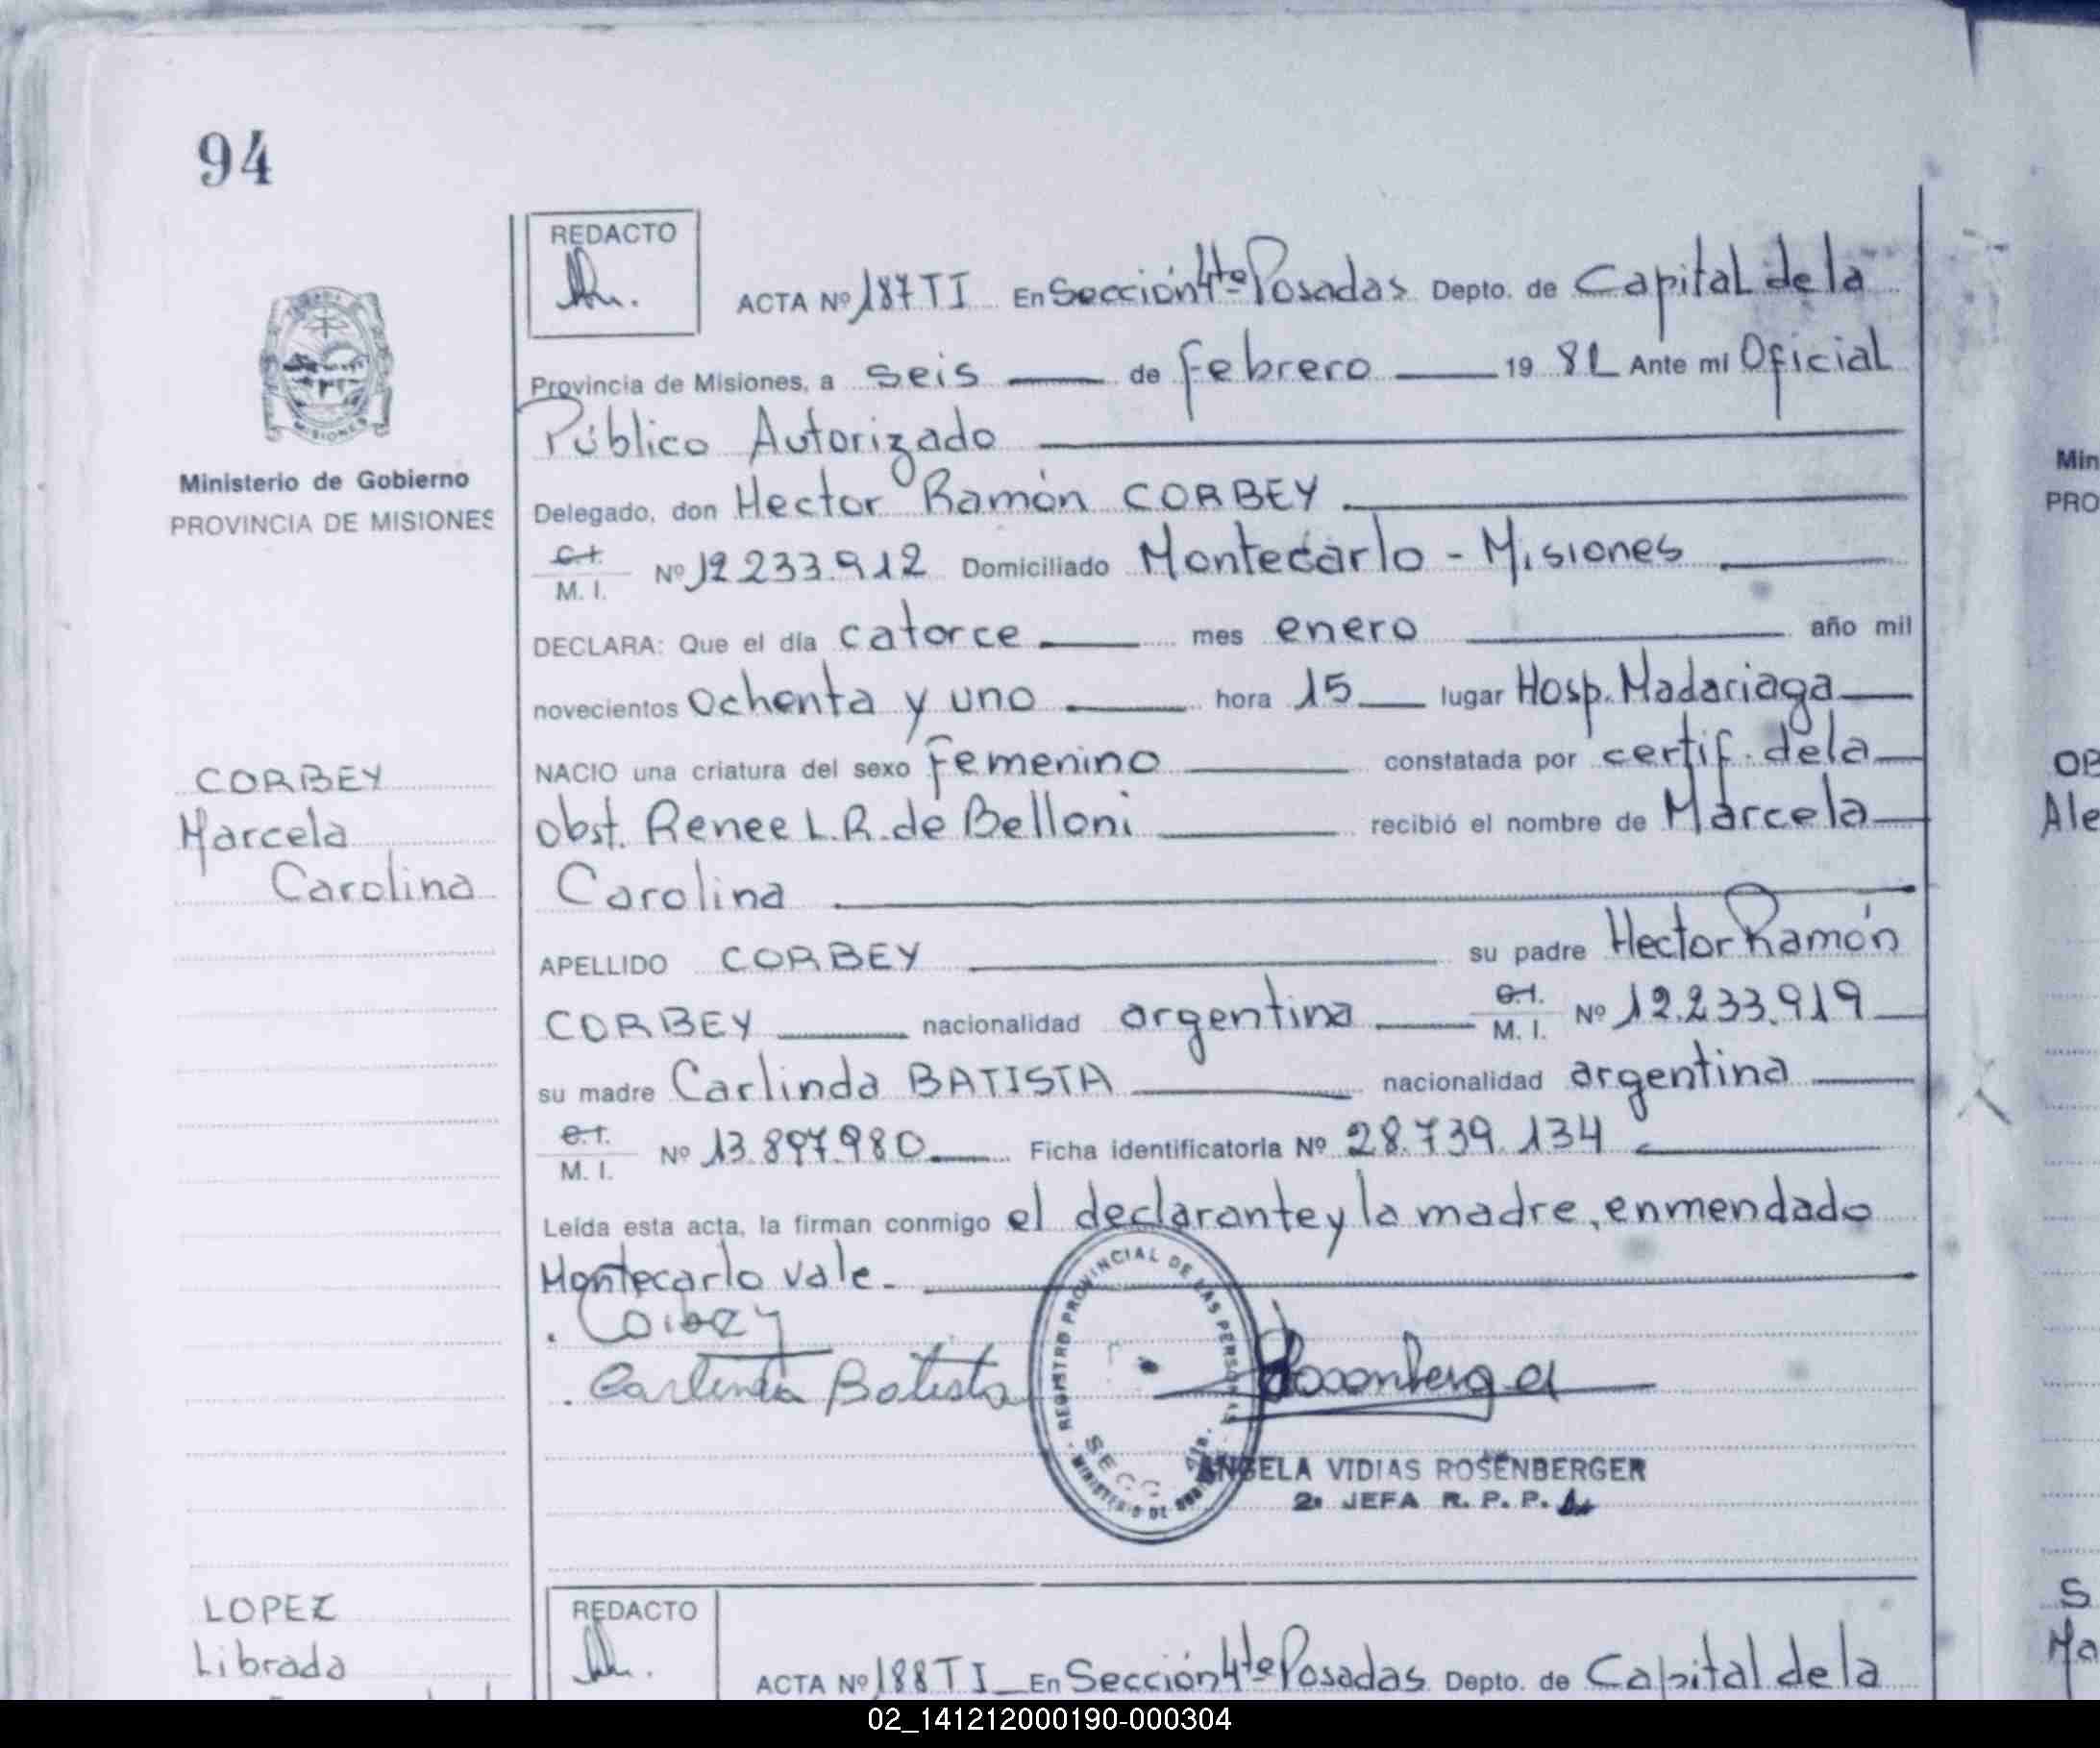 94
REDACTO
ACTA Nº 187 T I En Sección 4ta Posadas Depto. de Capital de la
Provincia de Misiones, a seis de febrero 19 81 Ante mi Oficial
Público Autorizado
Ministerio de Gobierno
PROVINCIA DE MISIONES
Delegado, don Hector Ramón CORBEY
C.I.
M. I. Nº 12.233.912 Domiciliado Montecarlo - Misiones
DECLARA: Que el día catorce mes enero año mil
novecientos ochenta y uno hora 15 lugar Hosp. Madariaga
NACIO una criatura del sexo femenino constatada por certif. de la
obst. Renee L.R. de Belloni recibió el nombre de Marcela
Carolina
CORBEY
Marcela
Carolina
APELLIDO CORBEY su padre Hector Ramón
CORBEY nacionalidad argentina C.I. M. I. Nº 12.233.919
su madre Carlinda BATISTA nacionalidad argentina
C.I.
M. I. Nº 13.897.980 Ficha identificatoria Nº 28.739.134
Leída esta acta, la firman conmigo el declarante y la madre, enmendado
Montecarlo vale.
Corbey
Carlinda Batista
Rosenberger
REGISTRO PROVINCIAL DE LAS PERSONAS
SECC
MINISTERIO DE
ANGELA VIDIAS ROSENBERGER
2ª JEFA R. P. P.
LOPEZ
Librada
REDACTO
ACTA Nº 188 T I En Sección 4ta Posadas Depto. de Capital de la
Min
PRO
Ale
S
Ma
02_141212000190-000304